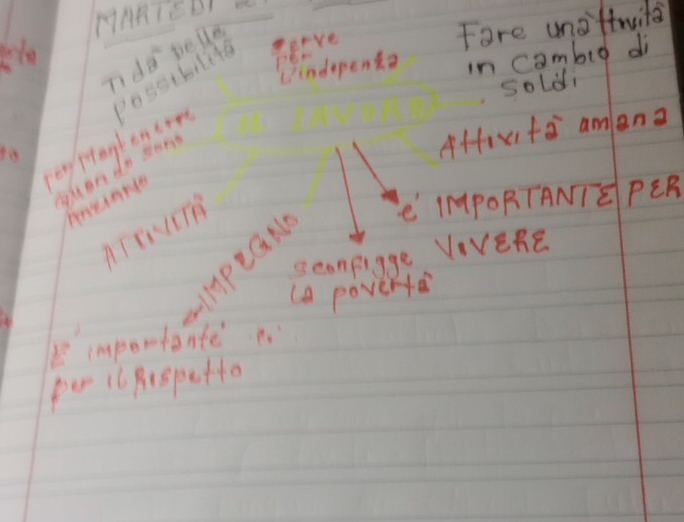 MARTEDÌ
Ti dà delle
possibilità
serve
per
l'indipenza
Fare un'attività
in cambio di
soldi
IL LAVORO
Attività amana
Per Mantenere
quando sono
ANZIANO
ATTIVITÀ
IMPEGNO
sconfigge
la povertà
e' IMPORTANTE PER
VIVERE
E' importante e'
per il Rispetto